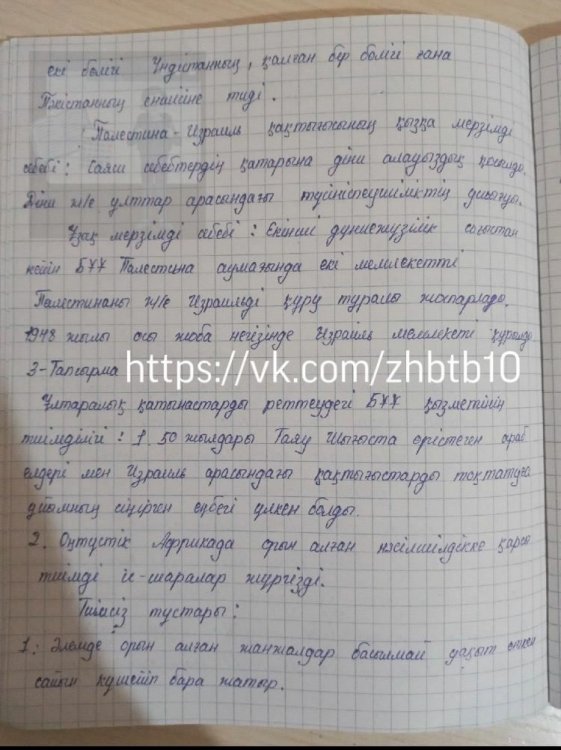 екі бөлігі Үндістанның, қалған бір бөлігі ғана
Пәкістанның еншісіне тиді.
Палестина-Израиль қақтығысының қысқа мерзімді
себебі: Саяси себептердің қатарына діни алауыздық қосылды.
Діни ж/е ұлттар арасындағы түсініспеушіліктің
Ұзақ мерзімді себебі: Екінші дүниежүзілік соғыстан
кейін БҰҰ Палестина аумағында екі мемлекетті
Палестинаны ж/е Израильді құру туралы жоспарлады.
1948 жылы осы жоба негізінде Израиль мемлекеті құрылды
3-Тапсырма
https://vk.com/zhbtb10
Ұлтаралық қатынастарды реттеудегі БҰҰ қызметінің
тиімділігі: 1. 50 жылдары Таяу Шығыста өрістеген араб
елдері мен Израиль арасындағы қақтығыстарды тоқтатуға
ұйымның сіңірген еңбегі үлкен болды.
2. Оңтүстік Африкада орын алған нәсілшілдікке қарсы
тиімді іс-шаралар жүргізді.
Тиімсіз тұстары:
1: Әлемде орын алған жанжалдар басылмай уақыт өткен
сайын күшейіп бара жатыр.